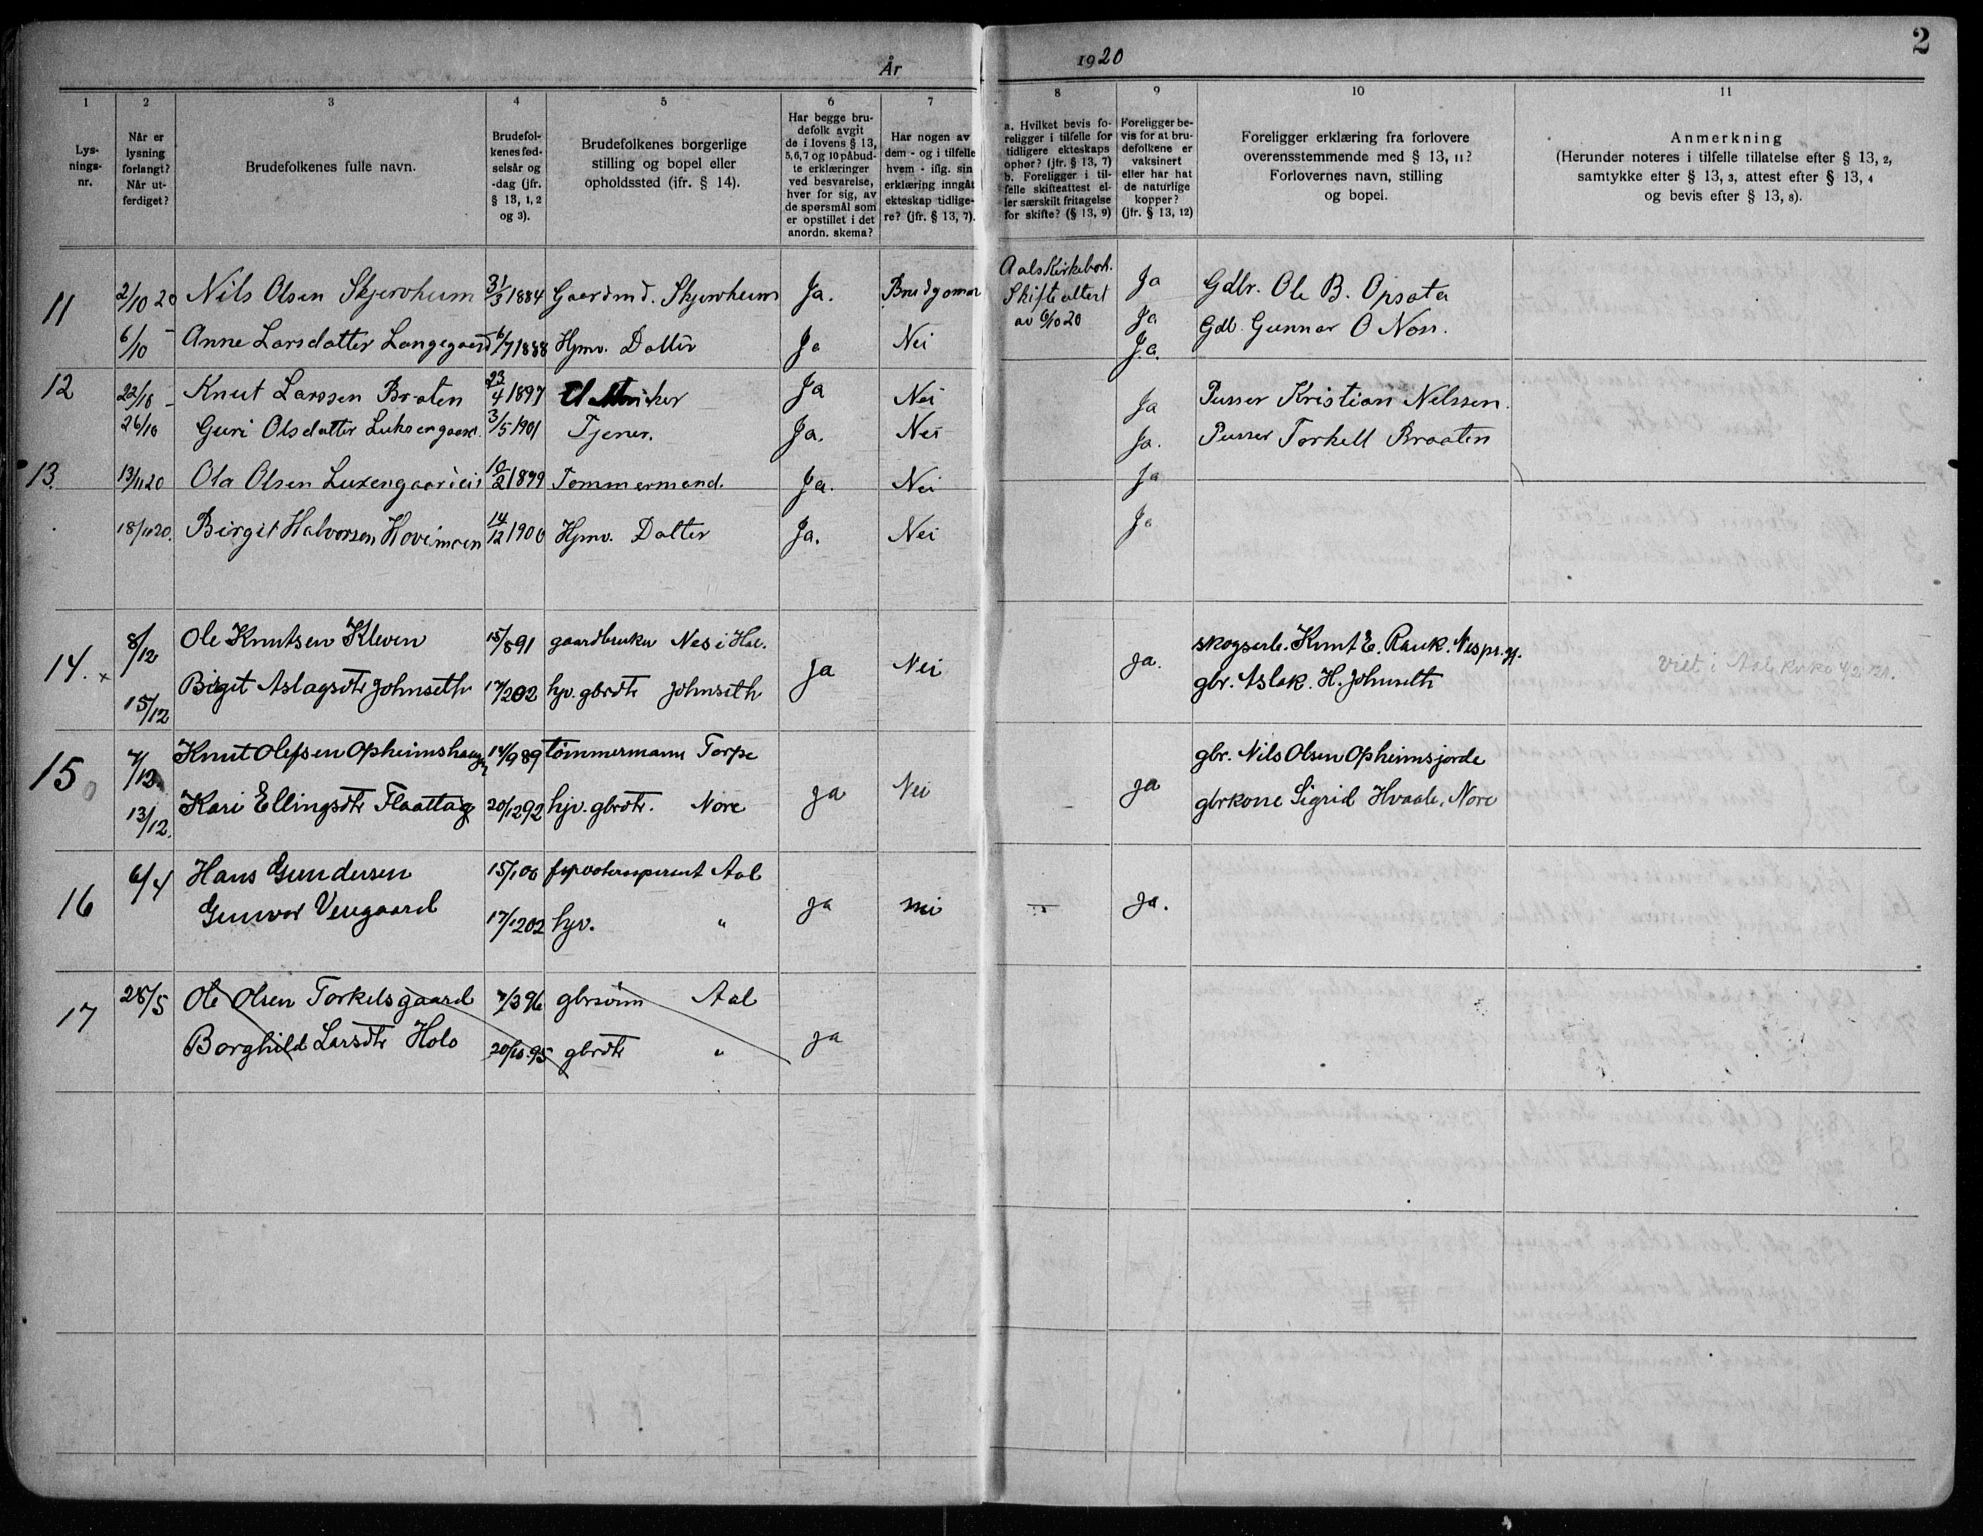 2
År 1920
1 2 3 4 5 6 7 8 9 10 11
Lys-
nings-
nr.
Når er
lysning
forlangt?
Når ut-
ferdiget?
Brudefolkenes fulle navn.
Brudefol-
kenes fød-
selsår og
-dag (jfr.
§ 13, 1, 2
og 3).
Brudefolkenes borgerlige
stilling og bopel eller
opholdssted (ifr. § 14).
Har begge bru-
defolk avgit
de i lovens § 13,
5, 6, 7 og 10 påbud-
te erklæringer
ved besvarelse,
hver for sig, av
de spørsmål som
er opstillet i det
anordn. skema?
Har nogen av
dem - og i tilfelle
hvem - iflg. sin
erklæring inngåt
ekteskap tidlige-
re? (jfr. § 13, 7).
a. Hvilket bevis fo-
religger i tilfelle for
tidligere ekteskaps
ophør? (jfr. § 13, 7)
b. Foreligger i til-
felle skifteattest el-
ler særskilt fritagelse
for skifte? (§ 13, 9)
Foreligger be-
vis for at bru-
defolkene er
vaksinert
eller har hat
de naturlige
kopper?
(jfr. § 13, 12)
Foreligger erklæring fra forlovere
overensstemmende med § 13, 11?
Forlovernes navn, stilling
og bopel.
Anmerkning
(Herunder noteres i tilfelle tillatelse efter § 13, 2,
samtykke efter § 13, 3, attest efter § 13, 4
og bevis efter § 13, 8).
11 2/10 20 Nils Olsen Skjervheim 31/3 1884 Gaardmd. Skjervheim Ja. Brudgomen Aals Kirkebok. Ja Gdbr. Ole B. Opsata
6/10 – Anne Larsdatter Langegaard 6/7 1888 Hjmv. Datter Ja Nei Skifteattest av 6/10 20 Ja Gdb. Gunnar O Noss.
Ja.
12 22/10 – Knut Larssen Braten 23/4 1897 Ja Nei Ja Pusser Kristian Nelssen.
26/10 Guri Olsdatter Luksengaard. 3/5 1901 Tjener. Ja. Nei Ja. Pusser Torkell Braaten
13. 13/11 20 Ola Olsen 10/2 1899 Tommermand. Ja. Nei Ja
18/11 20. Birgit Halvorsen Hovimoen 14/12 1900 Hjmv. Datter Ja. Nei Ja
14. x 8/12 Ole Knutsen Kleven 15/8 91 gaardbruker Nes i Hal. Ja Nei Ja. skogsarb. Knut E. Rauk. Nes pr.gj.
15/12 Birgit Aslagsdtr Johnseth 17/2 02 hjv. gbrdtr Johnseth gbr. Aslak. H. Johnseth viet i Aal kirke 4/2 1921.
15 7/12 Knut Olefsen Opheimshaug 14/9 89 tømmermann Torpe Ja Nei – ja gbr. Nils Olsen Opheimsjorde
13/12. Kari Ellingsdtr Flaatta 20/12 92 hjv. gbrdtr. Nore gbrkone Sigrid Hvaale, Nore
16 6/4 Hans Gundersen 15/1 00 Aal ja nei – Ja.
Gunvor Vengaard 17/12 02 hjv. "
17 28/5 Ole Olsen Torkelsgaard 7/3 96 gbrsønn Aal
Borghild Larsdtr Holo 20/10 95 gbrdtr " ja